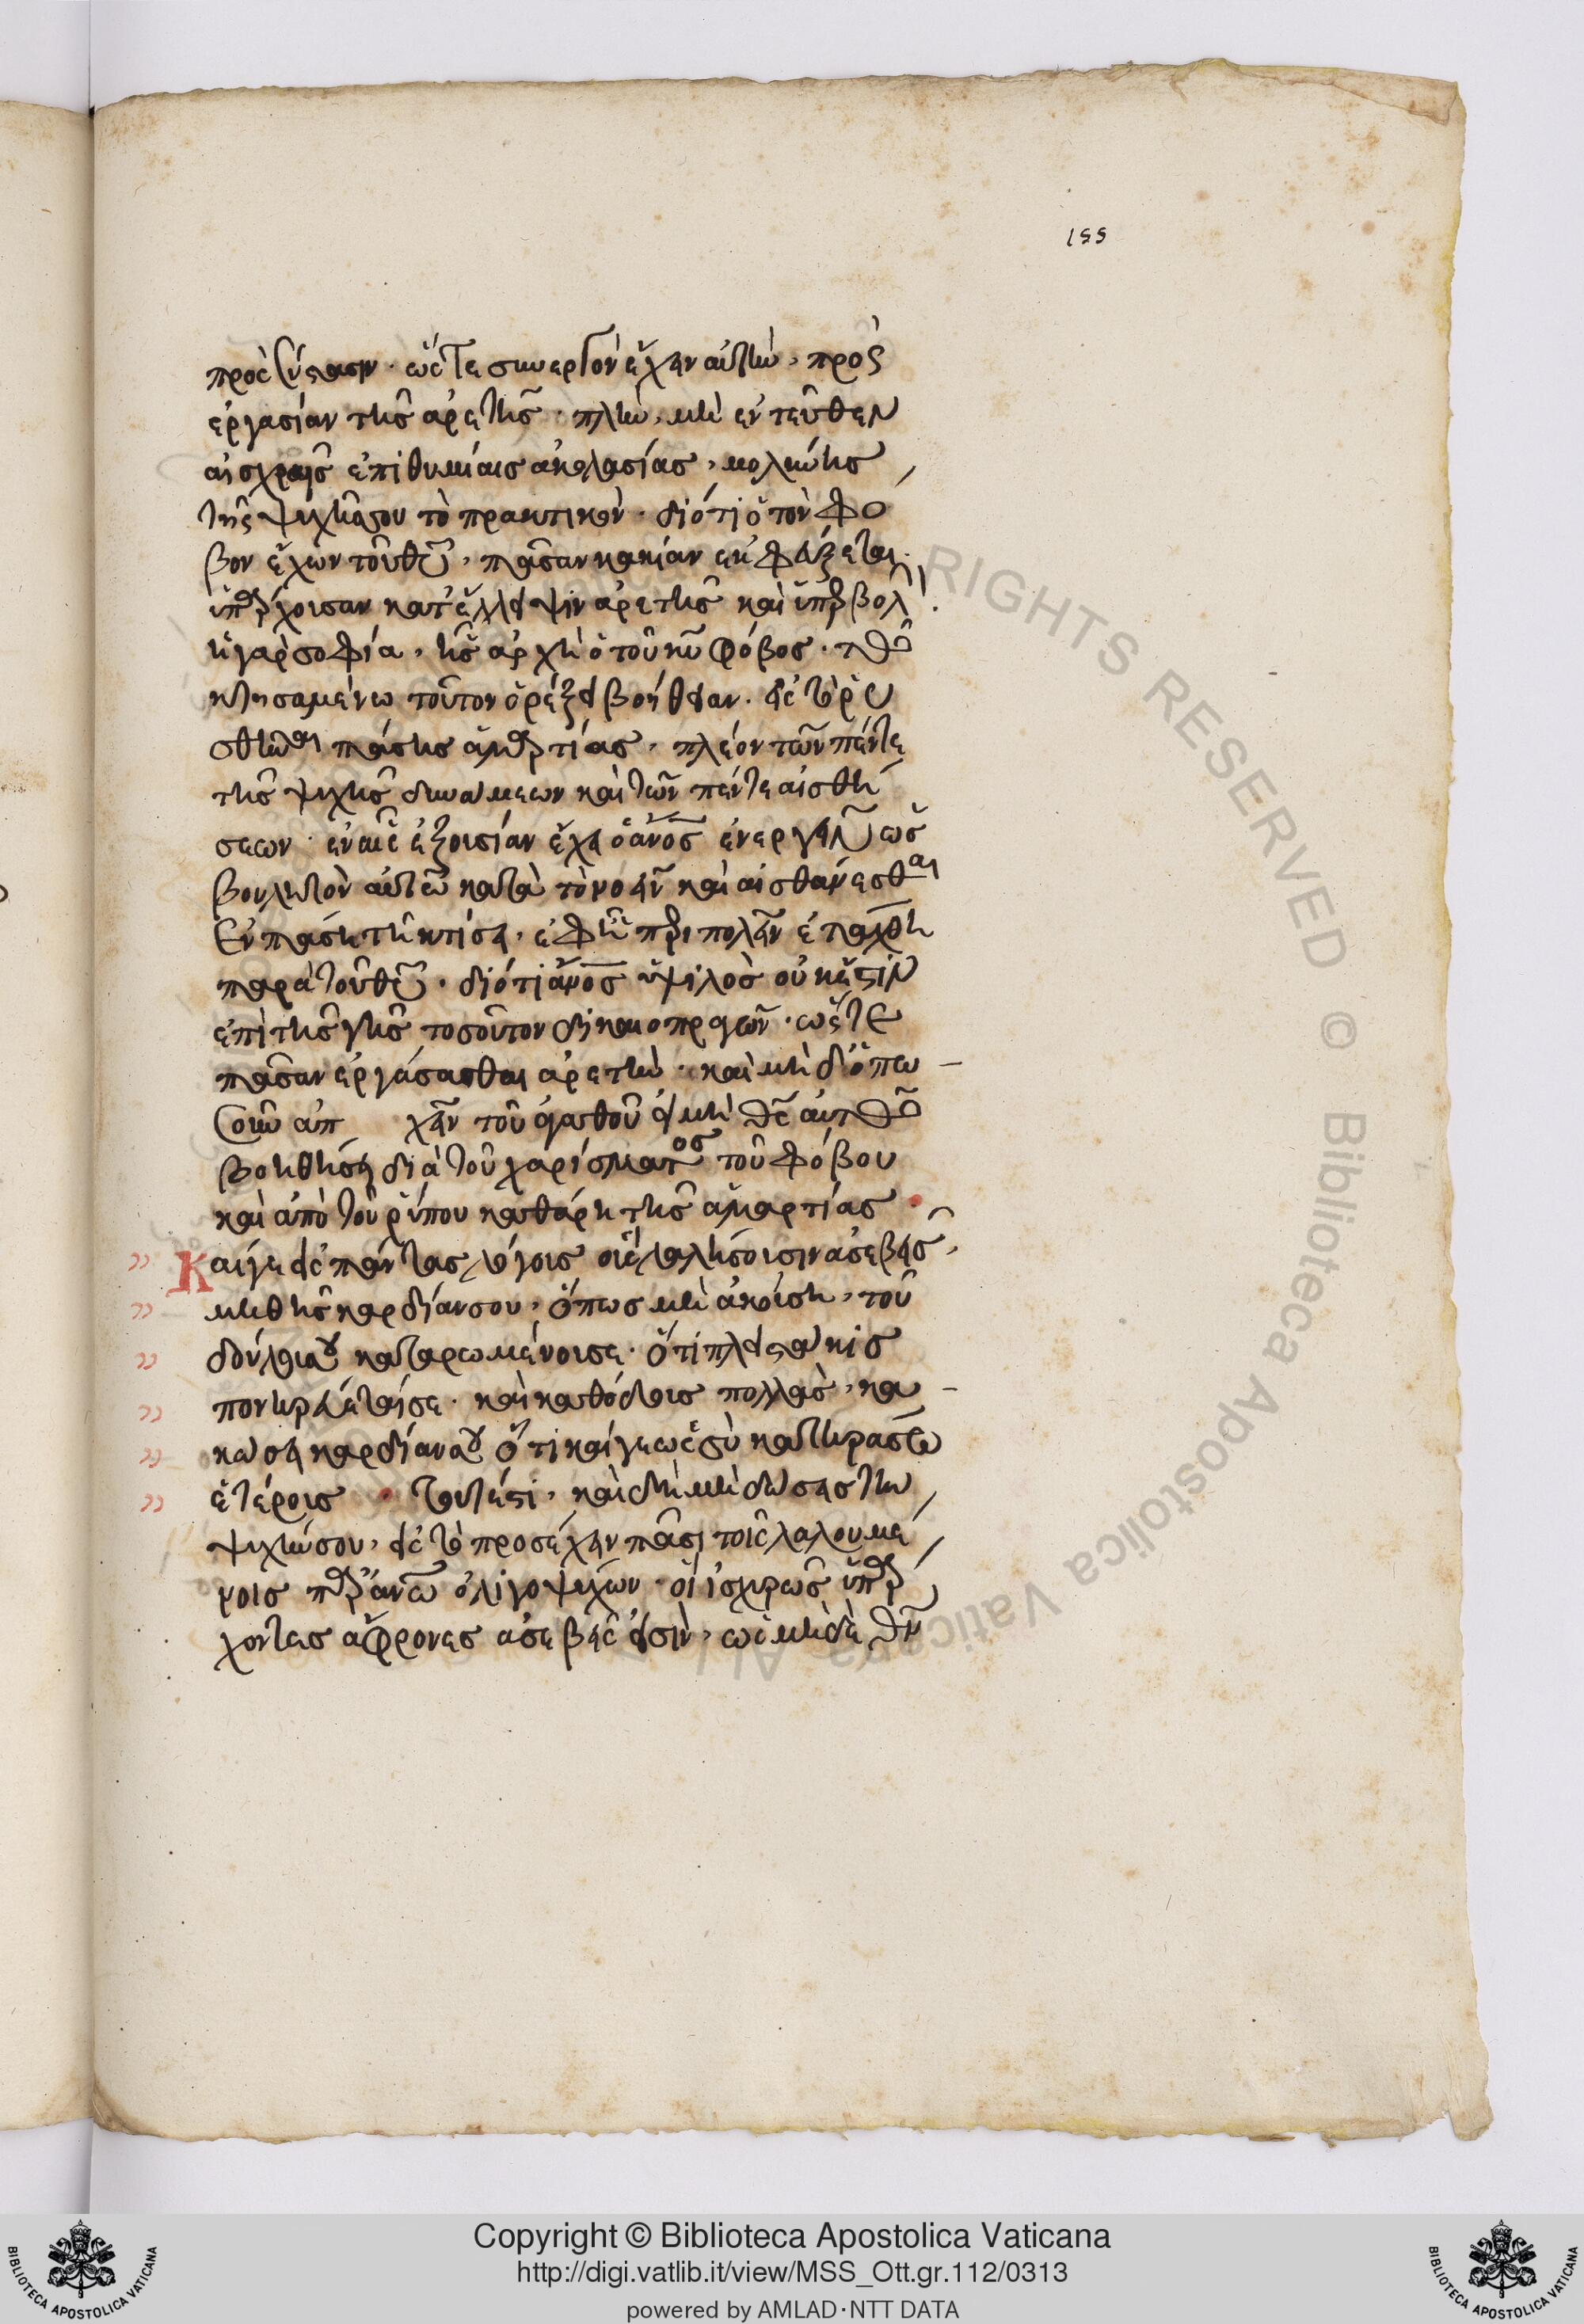 155
πρὸς σύστασιν· ὥστε συνεργὸν ἔχειν αὐτὴν, πρὸς
ἐργασίαν τῆς ἀρετῆς· πλὴν, μὴ ἐντεῦθεν
αἰσχραῖς ἐπιθυμίαις ἀκολασίας, μολυνης
τῆς ψυχῆς σου τὸ πρακτικὸν· διότι ὁ τὸν φό
βον ἔχων τοῦ θυ, πᾶσαν κακίαν ἐκφεύξεται·
ὑπάρχουσαν κατ' ἔλλειψιν ἀρετῆς καὶ ὑπερβολ
ἡ γὰρ σοφία, ἧς ἀρχὴ ὁ τοῦ κυ φόβος· τῶ
κτησαμένω τοῦτον ὀρέξει βοήθειαν· εἰς τὸ ῥυ
σθῆναι πάσης ἁμαρτίας, πλέον τῶν πέντε
τῆς ψυχῆς δυνάμεων καὶ τῶν πέντε αἰσθή
σεων· ἐν αἷς ἐξουσίαν ἔχει ὁ ανος ἐνεργεῖν ὡς
βουλητὸν αὐτῶ κατὰ τὸ νοεῖν καὶ αἰσθάνεσθαι
ἐν πάσῃ τῇ κτίσει, ἐφ' ἧ περιπολεῖν ἐτάχθη
παρὰ τοῦ θυ· διότι ανος ψιλὸς οὐκ ἔστιν
ἐπὶ τῆς γῆς τοσοῦτον δικαιοπραγῶν· ὥστε
πᾶσαν ἐργάσασθαι ἀρετὴν· καὶ μὴ δι' ὁπω
σοῦν ἀπ χεῖν τοῦ ἀγαθοῦ εἰ μὴ θς αὐτῶ
βοηθήσει διὰ τοῦ χαρίσματος τοῦ φόβου
καὶ ἀπὸ τοῦ ῥύπου καθάρη τῆς ἁμαρτίας
Καί γε εἰς πάντας λόγους οὓς λαλήσουσιν ἀσεβεῖς,
μὴ θῆς καρδίαν σου, ὅπως μὴ ἀκούσῃ, τοῦ
δούλου σου καταρωμένου σε· ὅτι πλειστάκις
πονηρεύεταί σε· καὶ καθόδους πολλὰς, κα
κώσει καρδίαν σου ὅτι καί γε ὡς σὺ κατηράσω
ἑτέρους · τουτέστι, καὶ δὴ μὴ δώσεις τὴν
ψυχήν σου, εἰς τὸ προσέχειν πᾶσι τοῖς λαλουμέ
νοις παρ' ἀνων ὀλιγοψύχων· οἳ ἰσχυρῶς ὑπάρ
χοντες ἄφρονες ἀσεβεῖς εἰσὶν, ὡς μηδὲ θν
RIGHTS RESERVED © Biblioteca Apostolica Vaticana
Copyright © Biblioteca Apostolica Vaticana
http://digi.vatlib.it/view/MSS_Ott.gr.112/0313
powered by AMLAD·NTT DATA
BIBLIOTECA APOSTOLICA VATICANA
BIBLIOTECA APOSTOLICA VATICANA